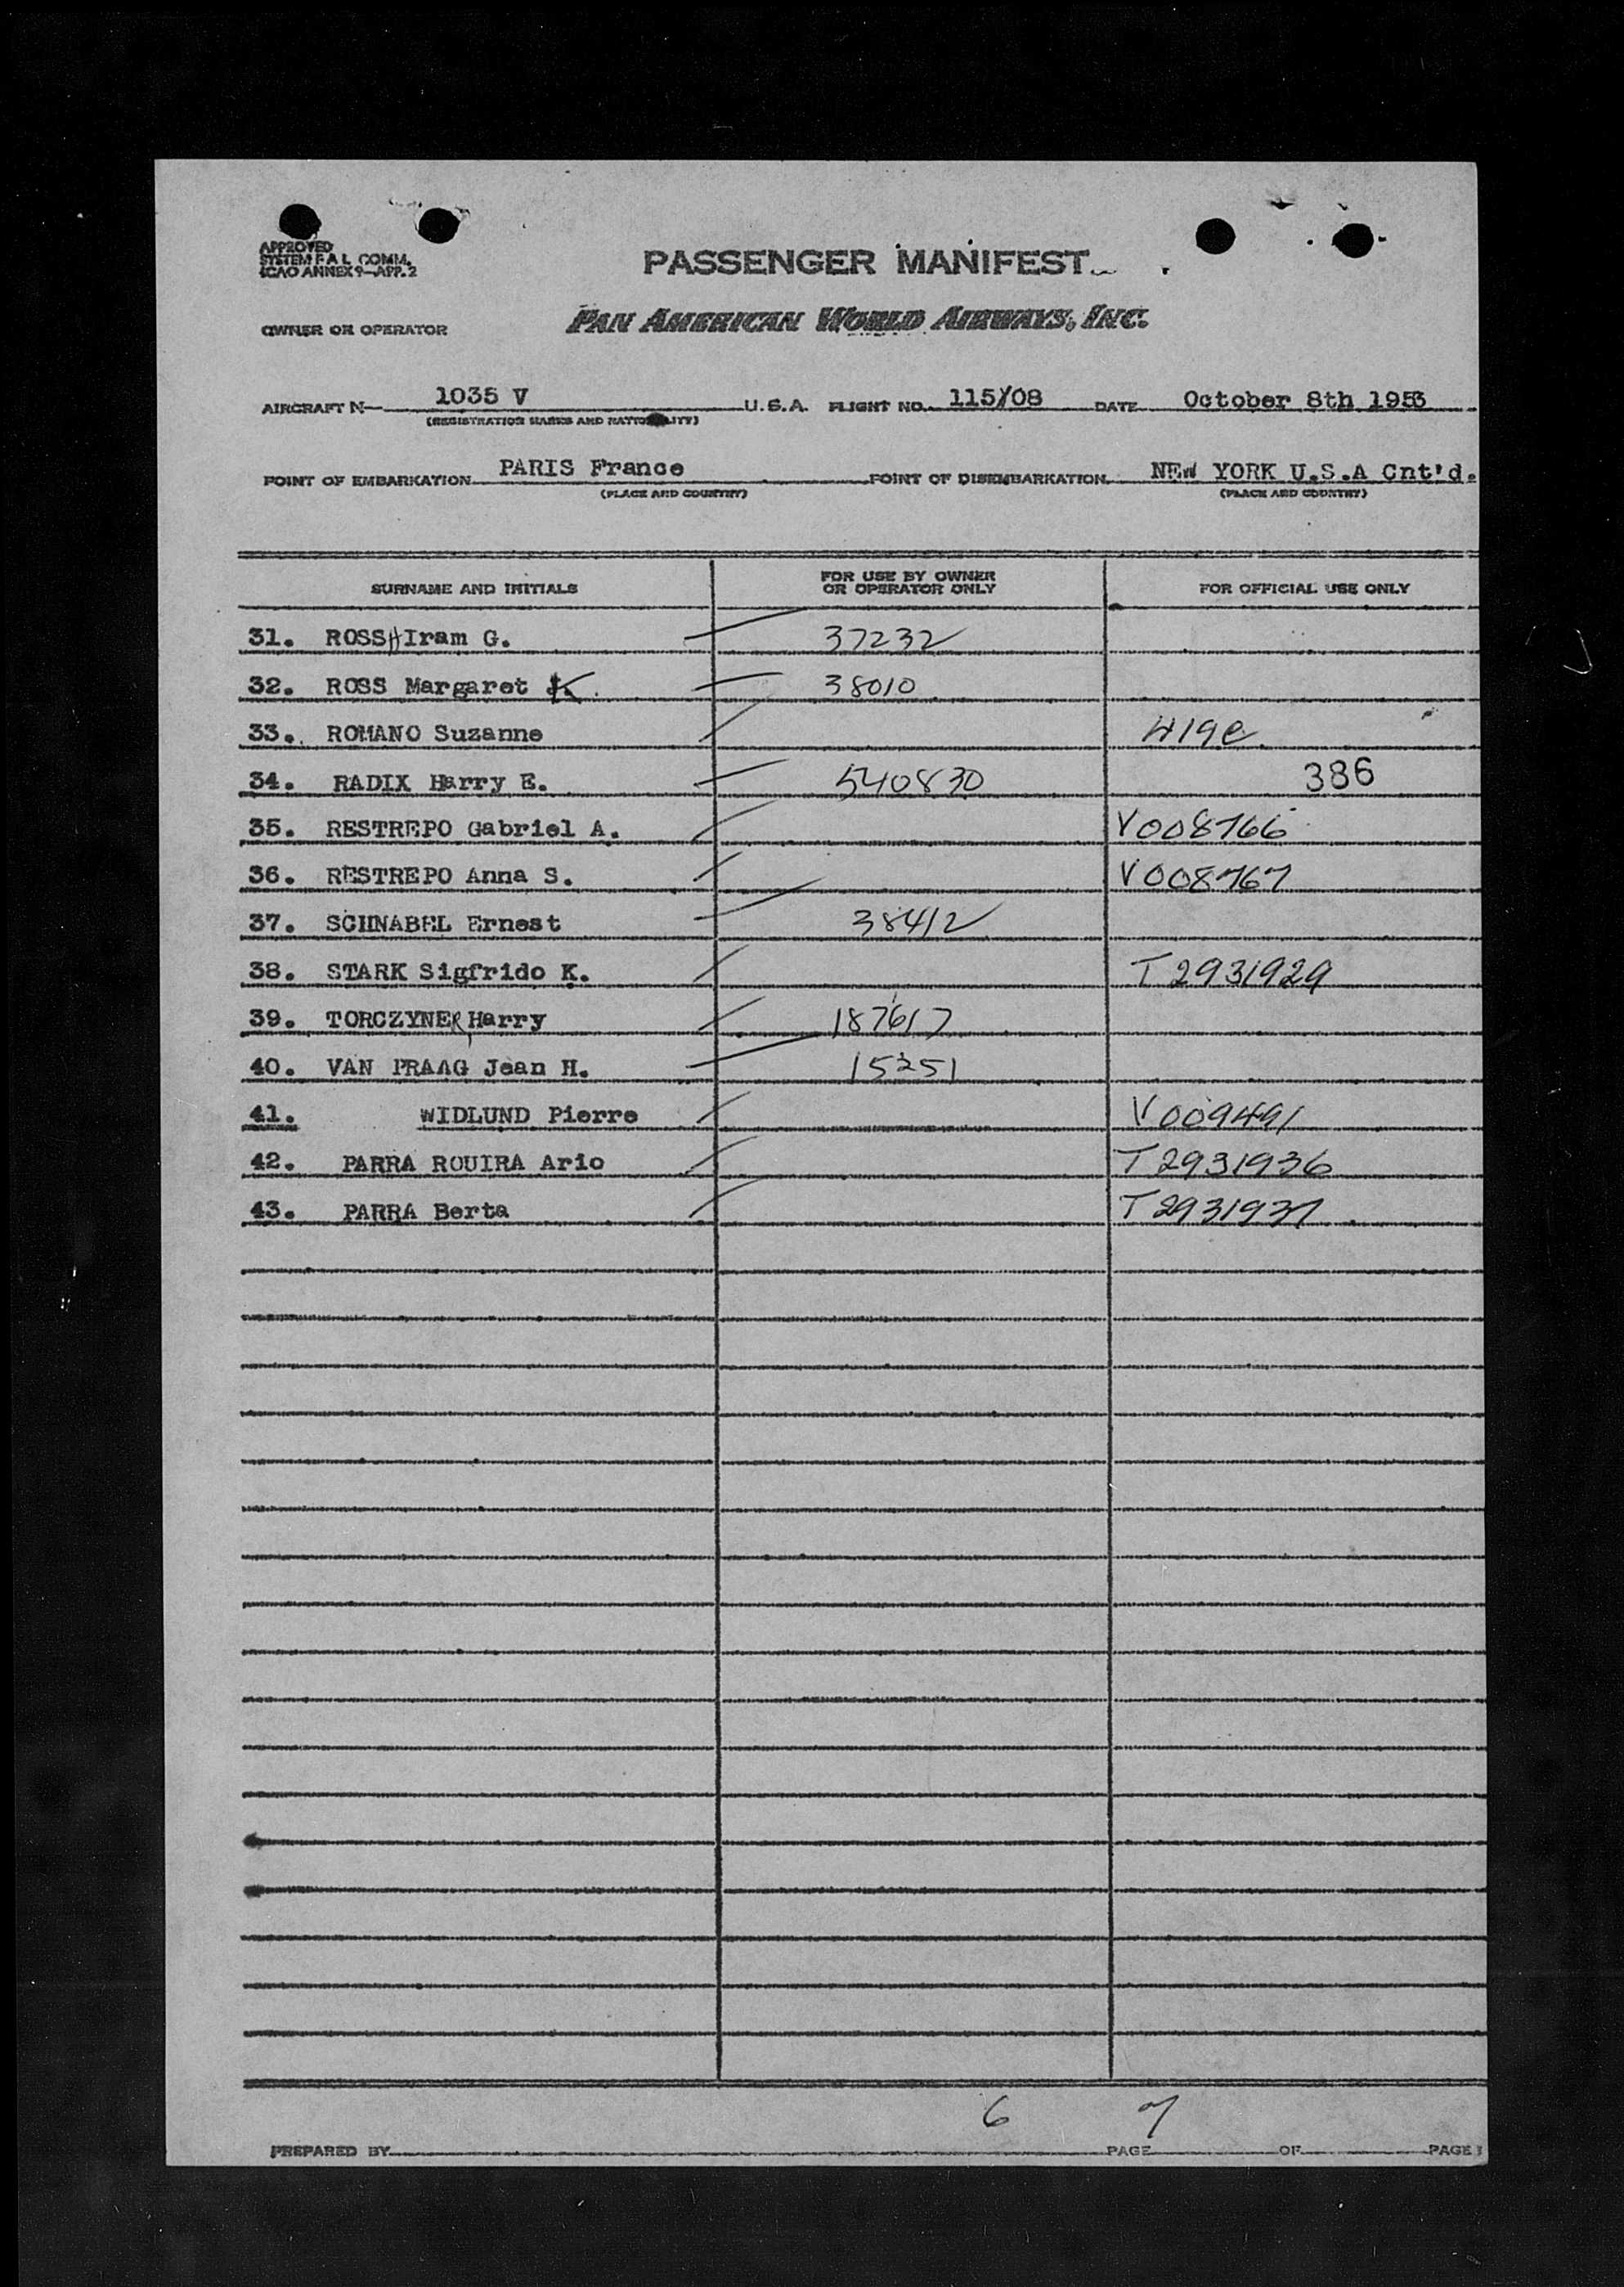 APPROVED
SYSTEM F A L COMM.
ICAO ANNEX 9—APP. 2
PASSENGER MANIFEST
OWNER OR OPERATOR
PAN AMERICAN WORLD AIRWAYS, INC.
AIRCRAFT N— 1035 V U.S.A. FLIGHT NO. 115/08 DATE October 8th 1953
(REGISTRATION MARKS AND NATIONALITY)
POINT OF EMBARKATION PARIS France POINT OF DISEMBARKATION NEW YORK U.S.A Cnt'd.
(PLACE AND COUNTRY) (PLACE AND COUNTRY)
SURNAME AND INITIALS FOR USE BY OWNER OR OPERATOR ONLY FOR OFFICIAL USE ONLY
31. ROSS HIram G. 37232
32. ROSS Margaret K. 38010
33. ROMANO Suzanne 419e
34. RADIX Harry E. 540830 386
35. RESTREPO Gabriel A. V008766
36. RESTREPO Anna S. V008767
37. SCHNABEL Ernest 38412
38. STARK Sigfrido K. T2931929
39. TORCZYNER, Harry 187617
40. VAN PRAAG Jean H. 15251
41. WIDLUND Pierre V009491
42. PARRA ROUIRA Ario T2931936
43. PARRA Berta T2931937
6 7
PREPARED BY PAGE OF PAGE